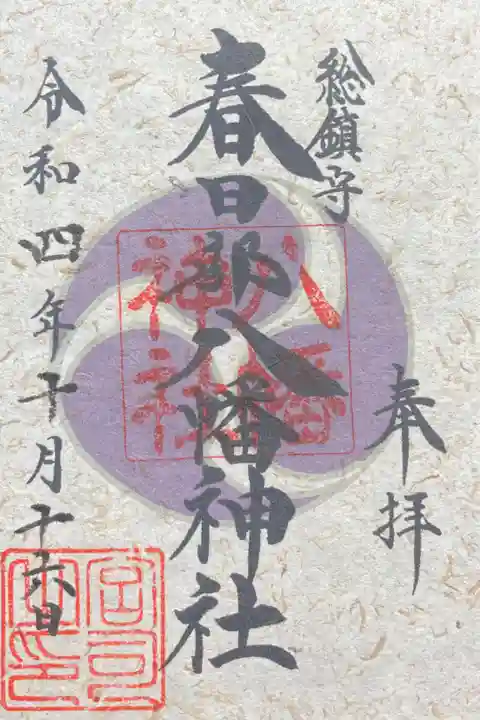 総鎮守
奉拝
春日部八幡神社
八幡
神社
令和四年十月十六日
宮司
之印